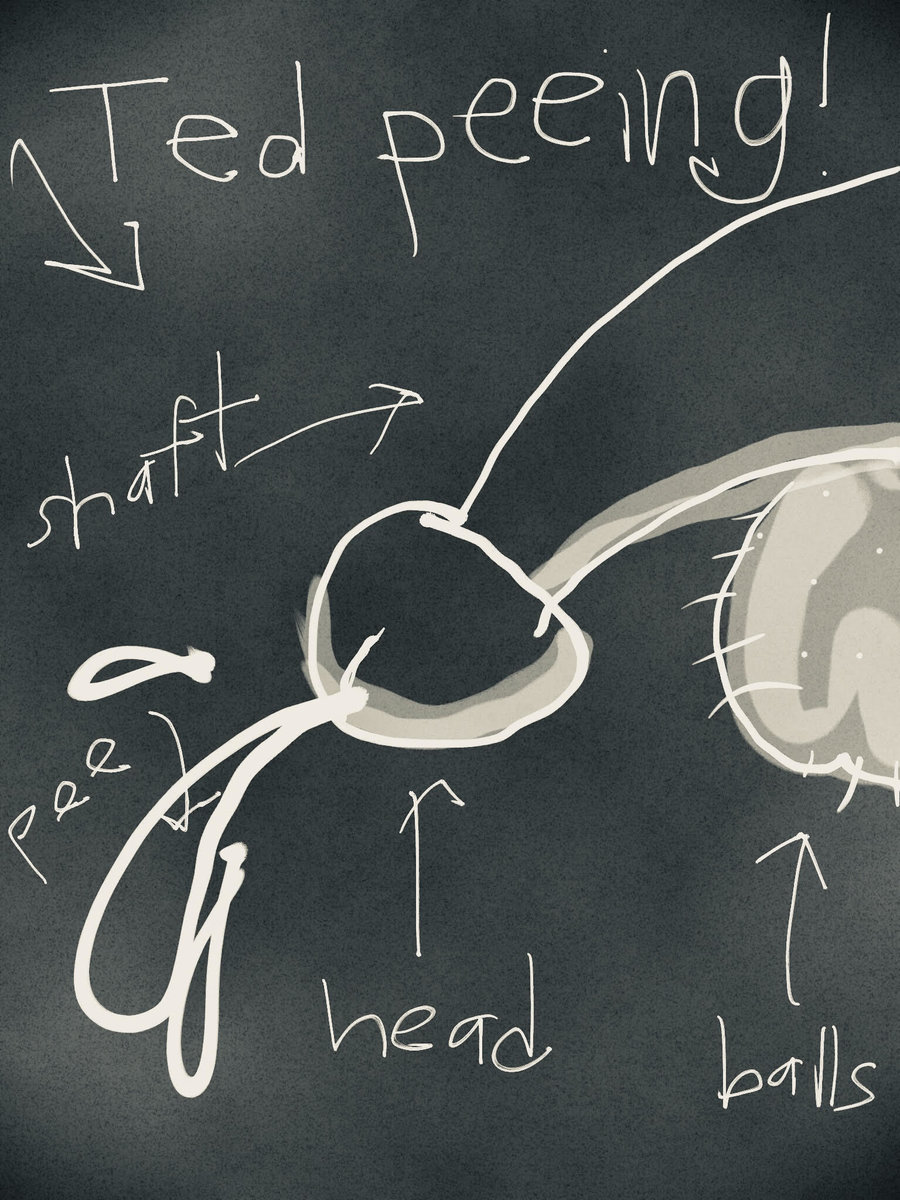 Ted peeing!
shaft
pee
head
balls